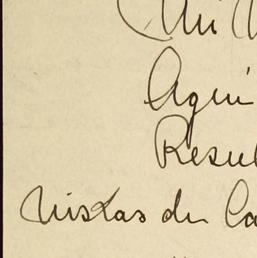 Mi
Aqui
Resul
vistas de Ca